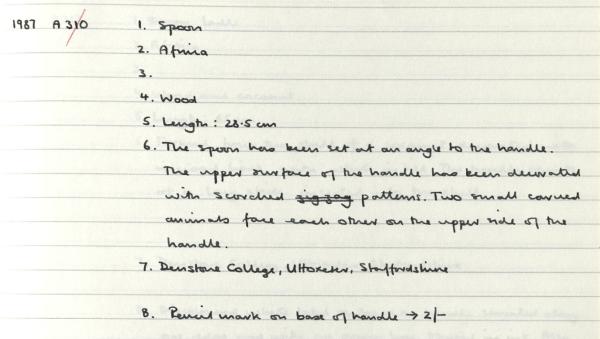 1987 A 310 1. Spoon
2. Africa
3.
4. Wood
5. Length: 28.5 cm
6. The spoon has been set at an angle to the handle.
The upper surface of the handle has been decorated
with scorched zig zag patterns. Two small carved
animals face each other on the upper side of the
handle.
7. Denstone College, Uttoxeter, Staffordshire
8. Pencil mark on base of handle → 2/-